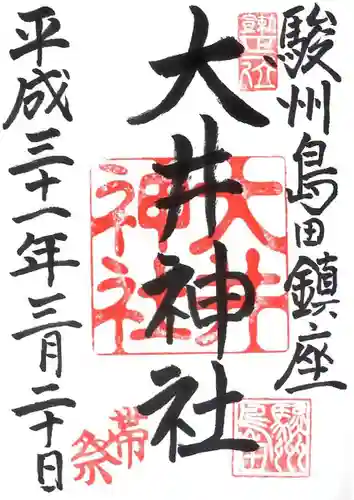 駿州島田鎮座
大井神社
平成三十一年三月二十日
大井神社
帯祭